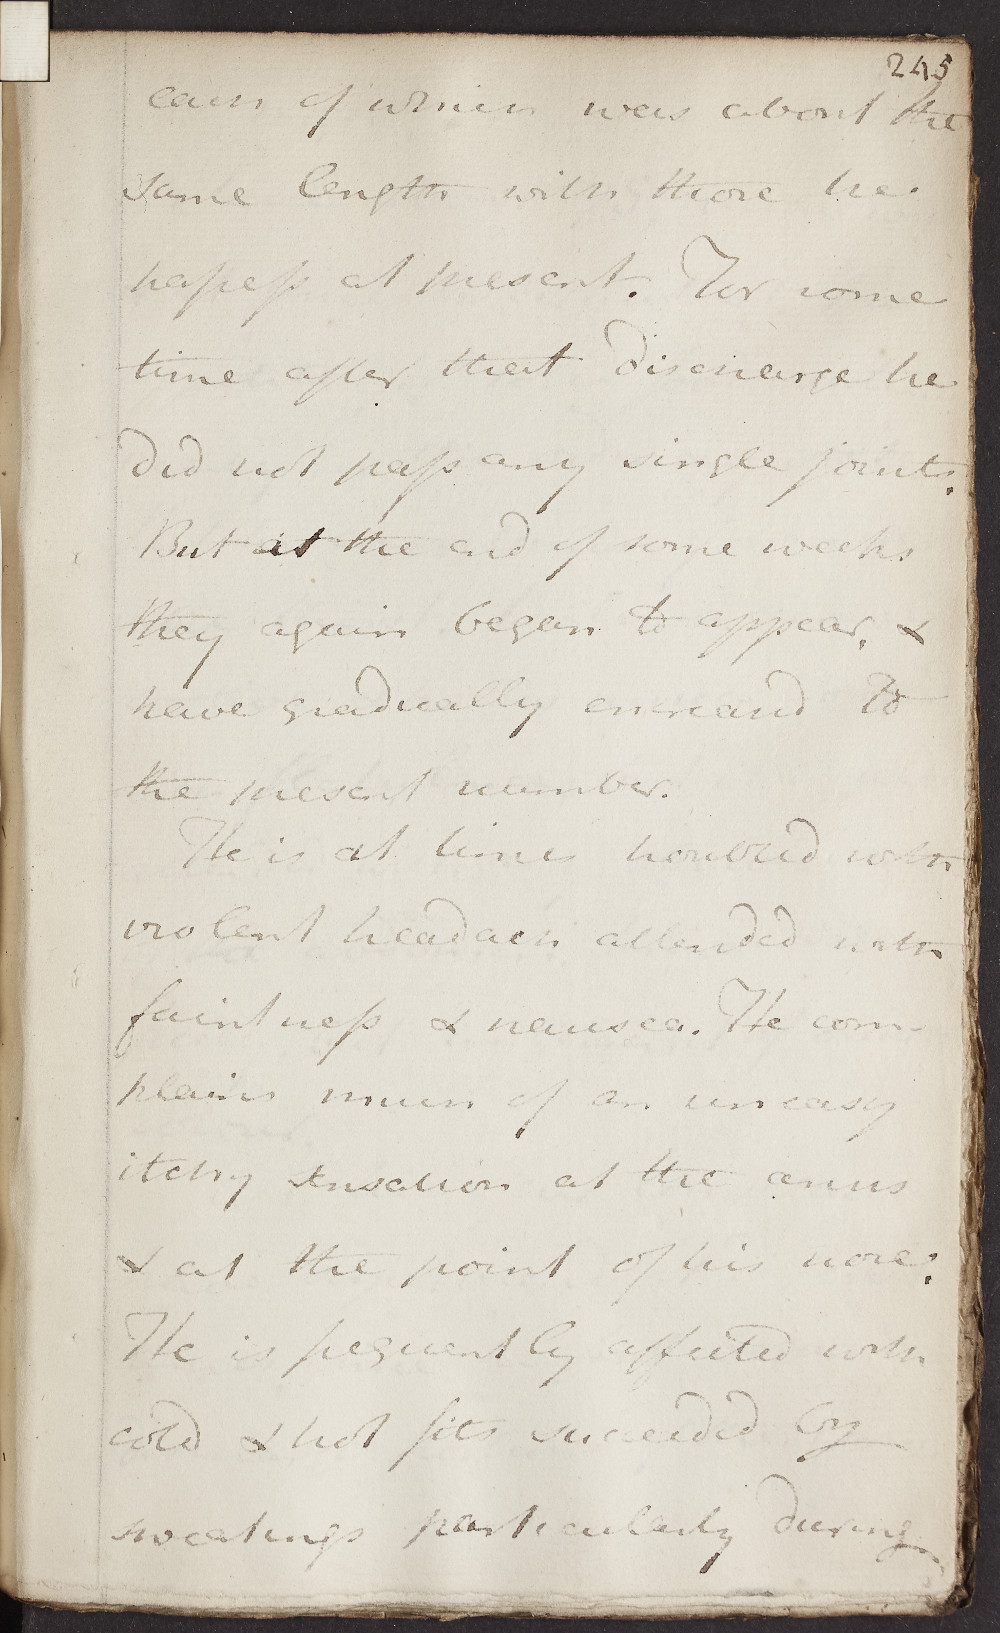 245
each of which was about the
same length with those he
passess at present. For some
time after that discharge he
did not pass any single joints.
But at the end of some weeks
they again began to appear, &
have gradually encreasd to
the present number.
He is at times troubled with
violent headach attended with
faintness & nausea. He com-
plains much of an uneasy
itchy sensation at the anus
& at the point of his nose.
He is frequently affected with
cold & hot fits succeeded by
sweatings particularly during